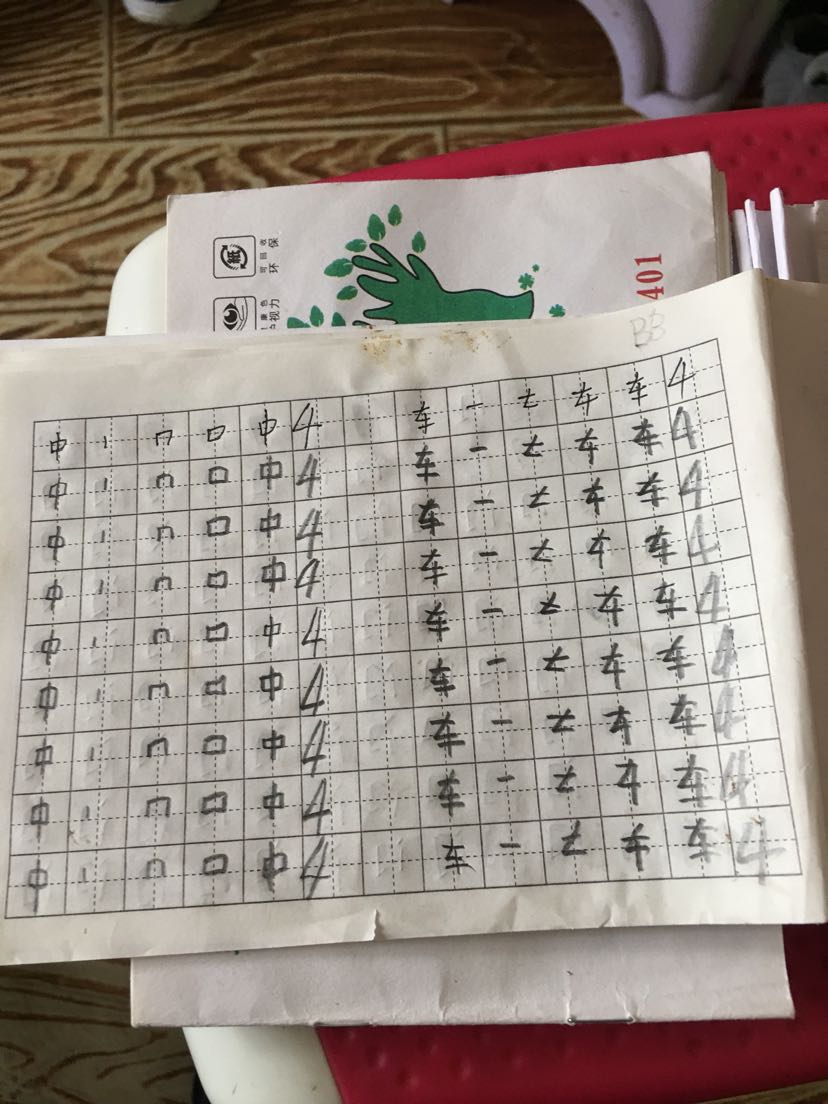 紙
可回收
环保
康色
视力
401
中 丨 冂 口 中 4 车 一 𠂇 车 车 4
中 丨 冂 口 中 4 车 一 𠂇 车 车 4
中 丨 冂 口 中 4 车 一 𠂇 车 车 4
中 丨 冂 口 中 4 车 一 𠂇 车 车 4
中 丨 冂 口 中 4 车 一 𠂇 车 车 4
中 丨 冂 口 中 4 车 一 𠂇 车 车 4
中 丨 冂 口 中 4 车 一 𠂇 车 车 4
中 丨 冂 口 中 4 车 一 𠂇 车 车 4
中 丨 冂 口 中 4 车 一 𠂇 车 车 4